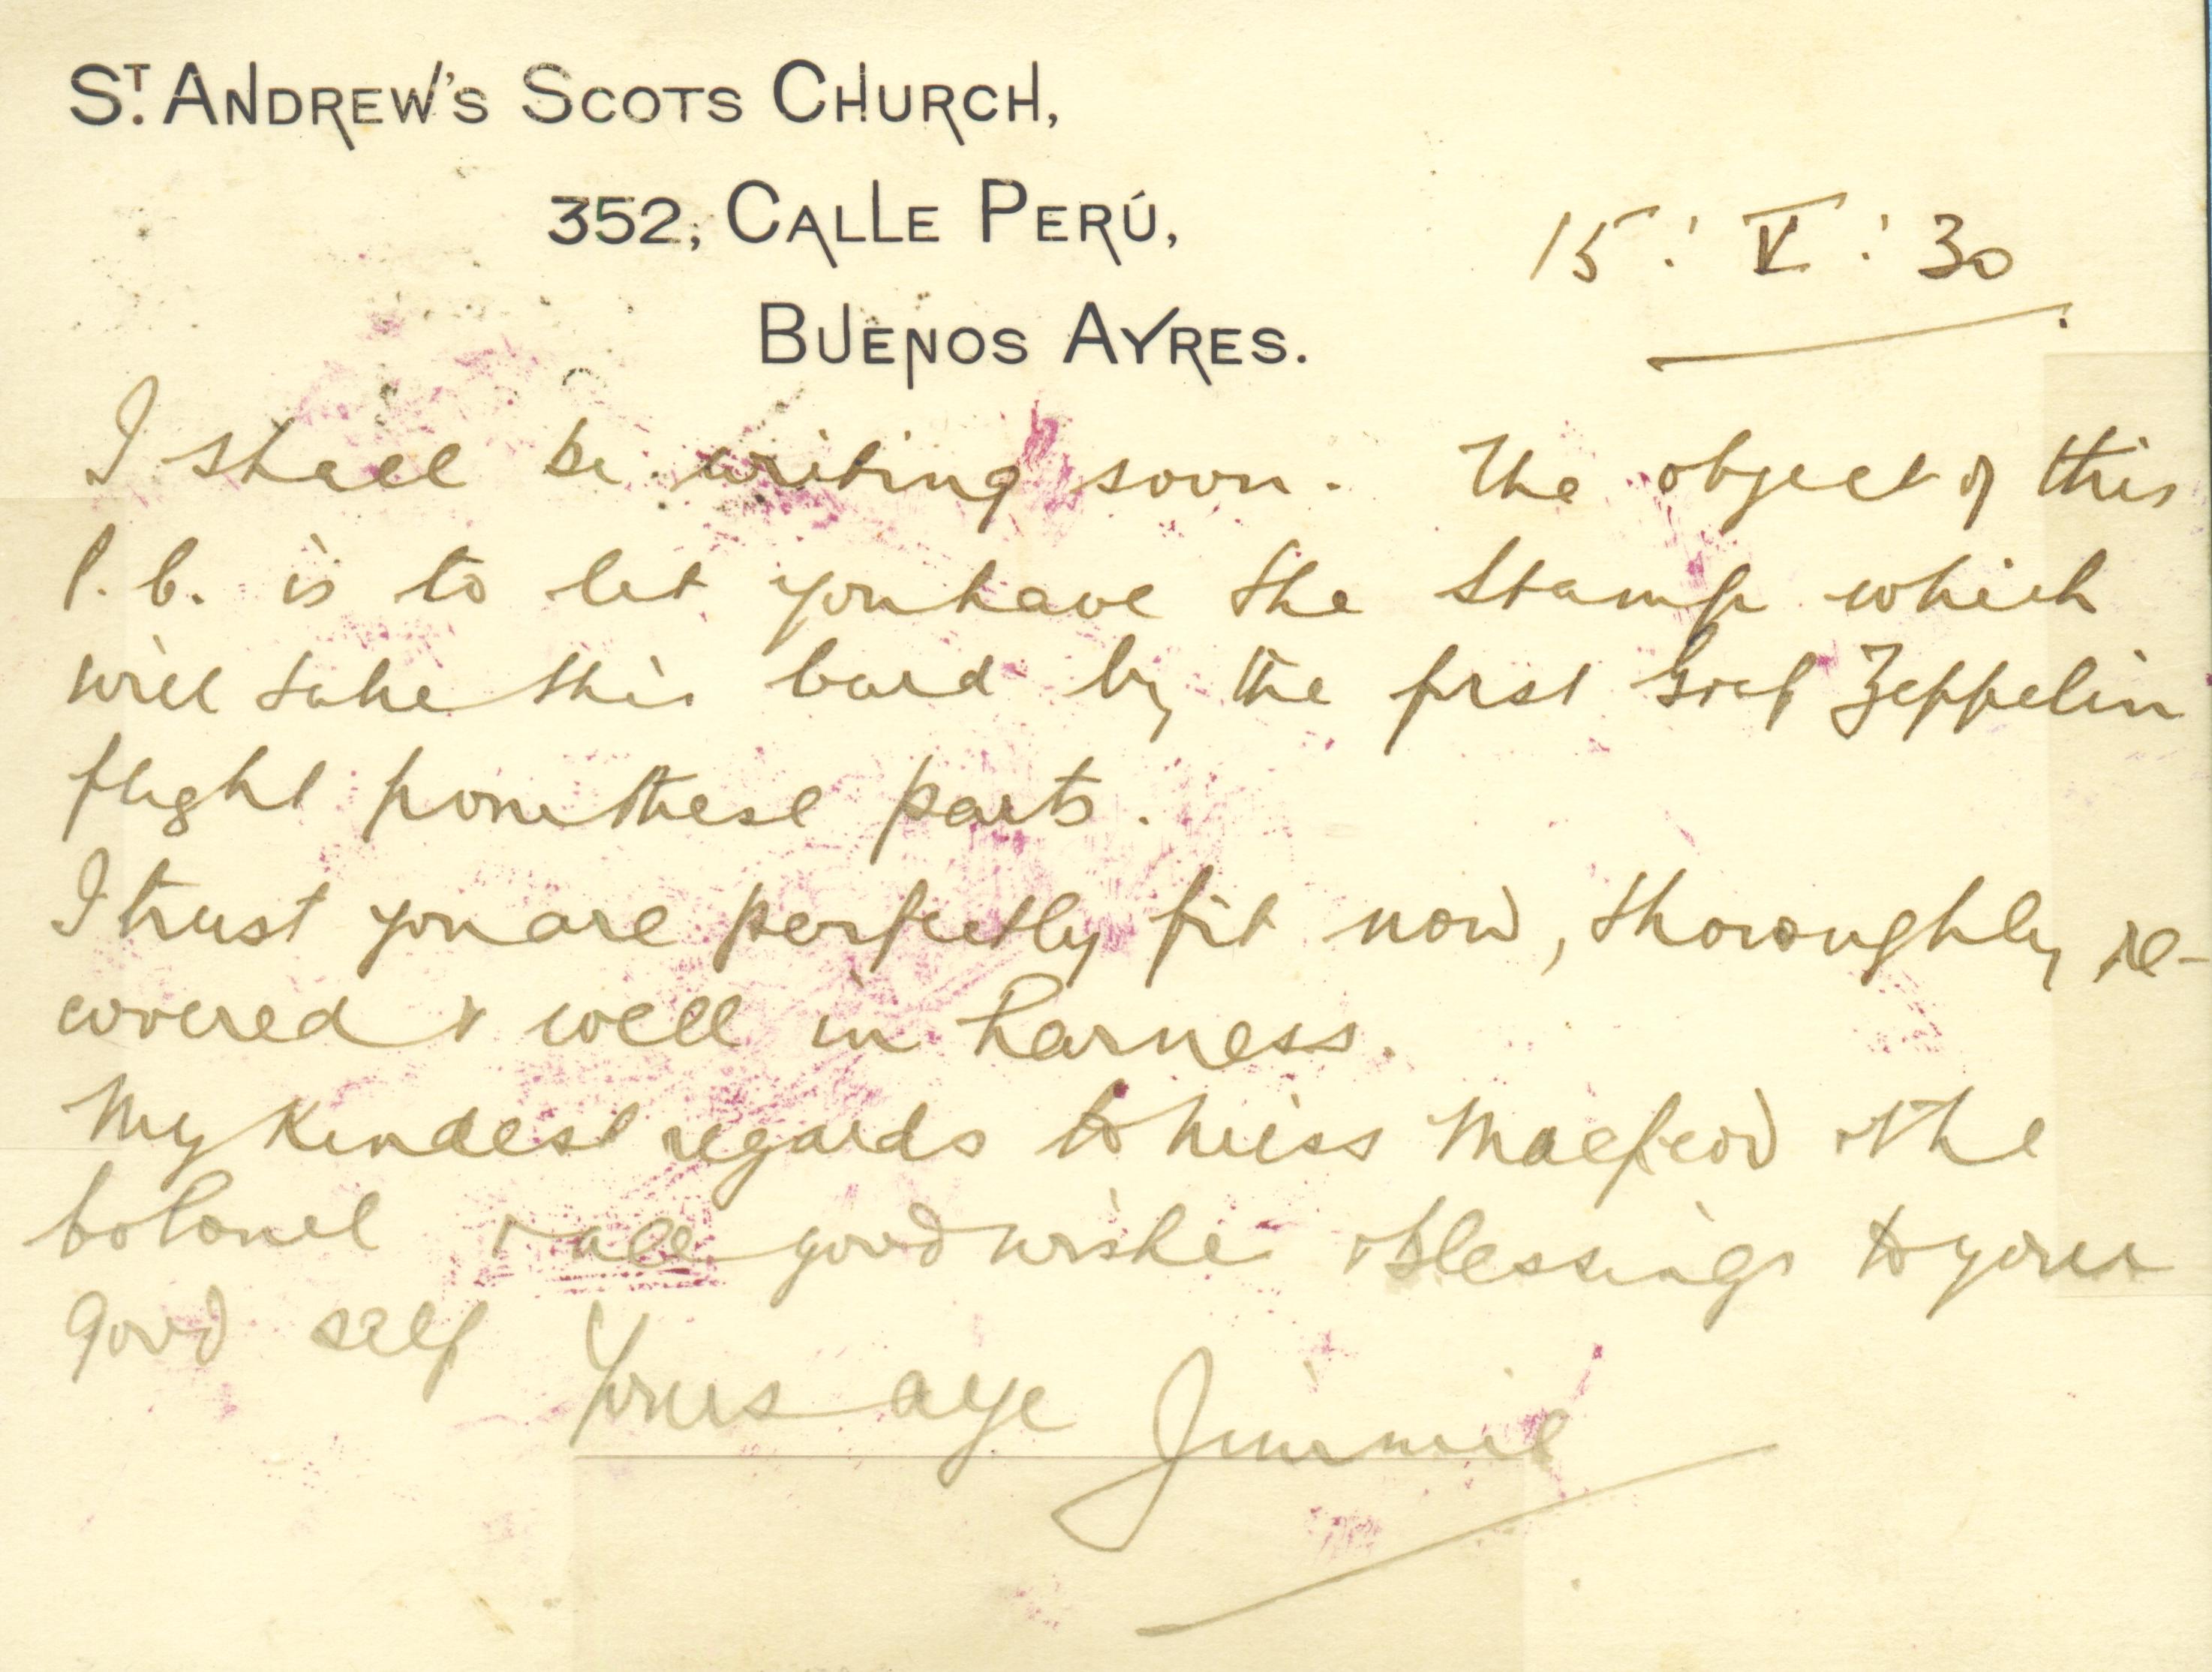 ST. ANDREW'S SCOTS CHURCH,
352, CALLE PERÚ,
BUENOS AYRES.
15 : V : 30
I shall be writing soon. The object of this
P.C. is to let you have the stamp which
will take this card by the first Graf Zeppelin
flight from these parts.
I trust you are perfectly fit now, thoroughly re-
covered & well in harness.
My kindest regards to Miss Macleod & the
Colonel & all good wishes & blessings to your
good self
Yours aye Jimmie